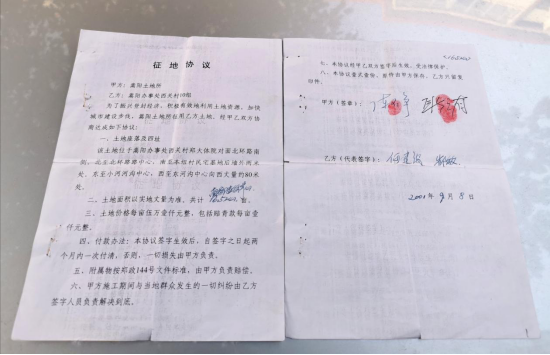 征地协议
甲方：嵩阳土地所
乙方：嵩阳办事处西关村10组
为了振兴登封经济，积极有效地利用土地资源，加快
城市建设步伐，嵩阳土地所征用乙方土地，经甲乙双方协
商达成如下协议：
一、土地座落及四址
该土地位于嵩阳办事处西关村郑大体院对面北环路南
侧，北至北环路路中心，南至本组村民宅基地后墙
东至小河河沟中心，西至东河沟中心向西丈量的80米
处。
二、土地面积以实地丈量为准，共计 亩。
三、土地价格每亩伍万壹仟元整，包括赔青款每亩壹
仟元整。
四、付款办法：本协议签字生效后，自签字之日起两
个月内一次付清，否则，一切损失由甲方负责。
五、附属物按郑政144号文件标准，由甲方负责赔偿。
六、甲方施工期间与当地群众发生的一切纠纷由乙方
签字人员负责解决到底。
七、本协议经甲乙双方签字后生效，受法律保护。
八、本协议壹式壹份，原件由甲方保存，乙方只留复
印件。
甲方（签章）：
乙方（代表签字）：
2001年9月8日